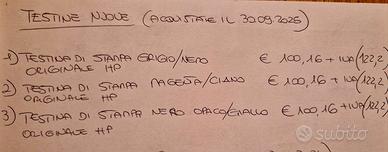 TESTINE NUOVE (ACQUISTATE IL 30.09.2025)
1) TESTINA DI STAMPA GRIGIO/NERO € 100,16 + IVA (122,2
ORIGINALE HP
2) TESTINA DI STAMPA MAGENTA/CIANO € 100,16 + IVA (122,2
ORIGINALE HP
3) TESTINA DI STAMPA NERO OPACO/GIALLO € 100,16 + IVA (122,2
ORIGINALE HP
subito